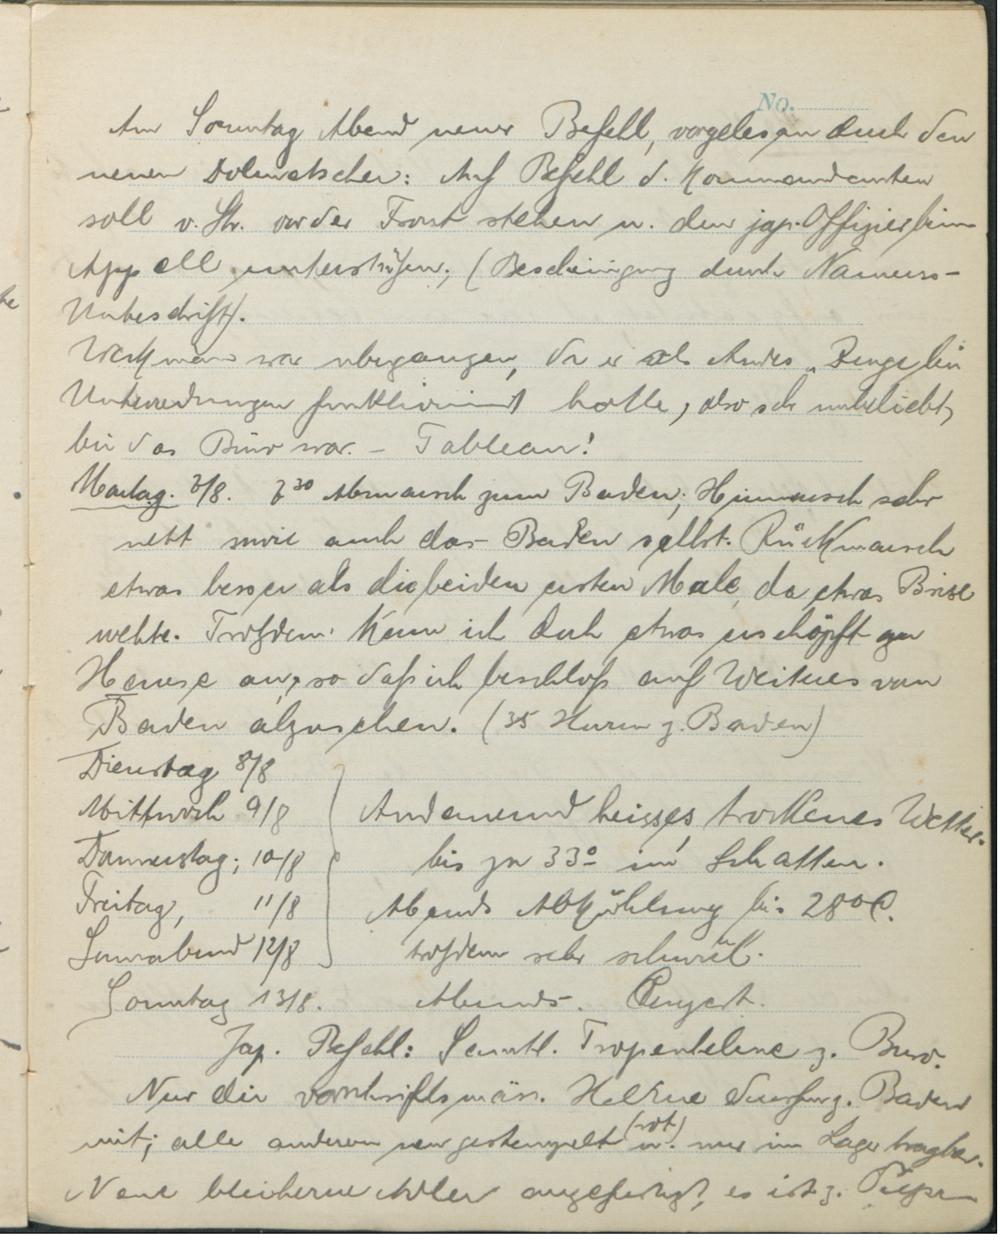 No.
Am Sonntag Abend neuer Befehl, vorgelesen durch den
neuen Dolmetscher: Auf Befehl d. Kommandanten
soll v. Str. vor der Front stehen u. den jap. Offizier beim
Appell unterstützen; (Bescheinigung durch Namens-
Unterschrift).
war übergangen, da er als Zeuge bei
Unterredungen funktioniert hatte, also sehr unbeliebt,
bei das Büro war. – Tableau!
Montag. 7/8. 7³⁰ Abmarsch zum Baden; Hinmarsch sehr
nett sowie auch das Baden selbst. Rückmarsch
etwas besser als die beiden ersten Male, da etwas Brise
wehte. Trotzdem kam ich doch etwas erschöpft zu
Hause an, so daß ich beschloß auf Weiteres vom
Baden abzusehen. (35 z. Baden)
Dienstag 8/8
Mittwoch 9/8 Andauernd heisses trockenes Wetter.
Donnerstag, 10/8 bis zu 33° im Schatten.
Freitag, 11/8 Abends Abkühlung bis 28° C.
Sonnabend 12/8 trotzdem sehr schwül.
Sonntag 13/8. Abends Conzert.
Jap. Befehl: Sämtl. Tropenhelme z. Büro.
Nur die vorschriftsmäss. Helme z. Baden
mit; alle anderen neu gestempelt (rot) u. nur im Lager tragbar.
Neue Adler angefertigt, es ist z.